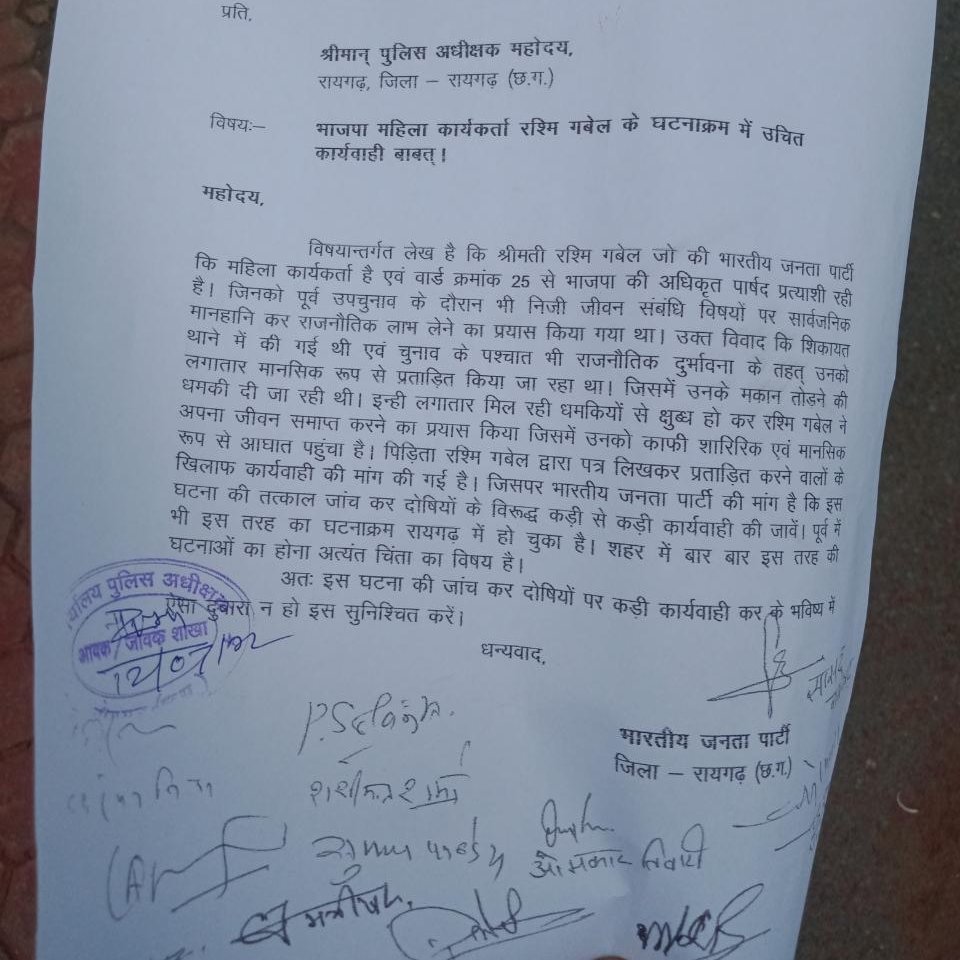 प्रति,
श्रीमान् पुलिस अधीक्षक महोदय,
रायगढ़, जिला – रायगढ़ (छ.ग.)
विषयः–
भाजपा महिला कार्यकर्ता रश्मि गबेल के घटनाक्रम में उचित
कार्यवाही बाबत्।
महोदय,
विषयान्तर्गत लेख है कि श्रीमती रश्मि गबेल जो की भारतीय जनता पार्टी
कि महिला कार्यकर्ता है एवं वार्ड क्रमांक 25 से भाजपा की अधिकृत पार्षद प्रत्याशी रही
है। जिनको पूर्व उपचुनाव के दौरान भी निजी जीवन संबंधि विषयों पर सार्वजनिक
मानहानि कर राजनौतिक लाभ लेने का प्रयास किया गया था। उक्त विवाद कि शिकायत
थाने में की गई थी एवं चुनाव के पश्चात भी राजनौतिक दुर्भावना के तहत् उनको
लगातार मानसिक रूप से प्रताड़ित किया जा रहा था। जिसमें उनके मकान तोड़ने की
धमकी दी जा रही थी। इन्ही लगातार मिल रही धमकियों से क्षुब्ध हो कर रश्मि गबेल ने
अपना जीवन समाप्त करने का प्रयास किया जिसमें उनको काफी शारिरिक एवं मानसिक
रूप से आघात पहुंचा है। पिड़िता रश्मि गबेल द्वारा पत्र लिखकर प्रताड़ित करने वालों के
खिलाफ कार्यवाही की मांग की गई है। जिसपर भारतीय जनता पार्टी की मांग है कि इस
घटना की तत्काल जांच कर दोषियों के विरूद्ध कड़ी से कड़ी कार्यवाही की जावें। पूर्व में
भी इस तरह का घटनाक्रम रायगढ़ में हो चुका है। शहर में बार बार इस तरह की
घटनाओं का होना अत्यंत चिंता का विषय है।
अतः इस घटना की जांच कर दोषियों पर कड़ी कार्यवाही कर के भविष्य में
ऐसा दुबारा न हो इस सुनिश्चित करें।
पुलिस अधीक्षक
आवक / जावक शाखा
धन्यवाद,
भारतीय जनता पार्टी
जिला – रायगढ़ (छ.ग.)
ओमकार तिवारी